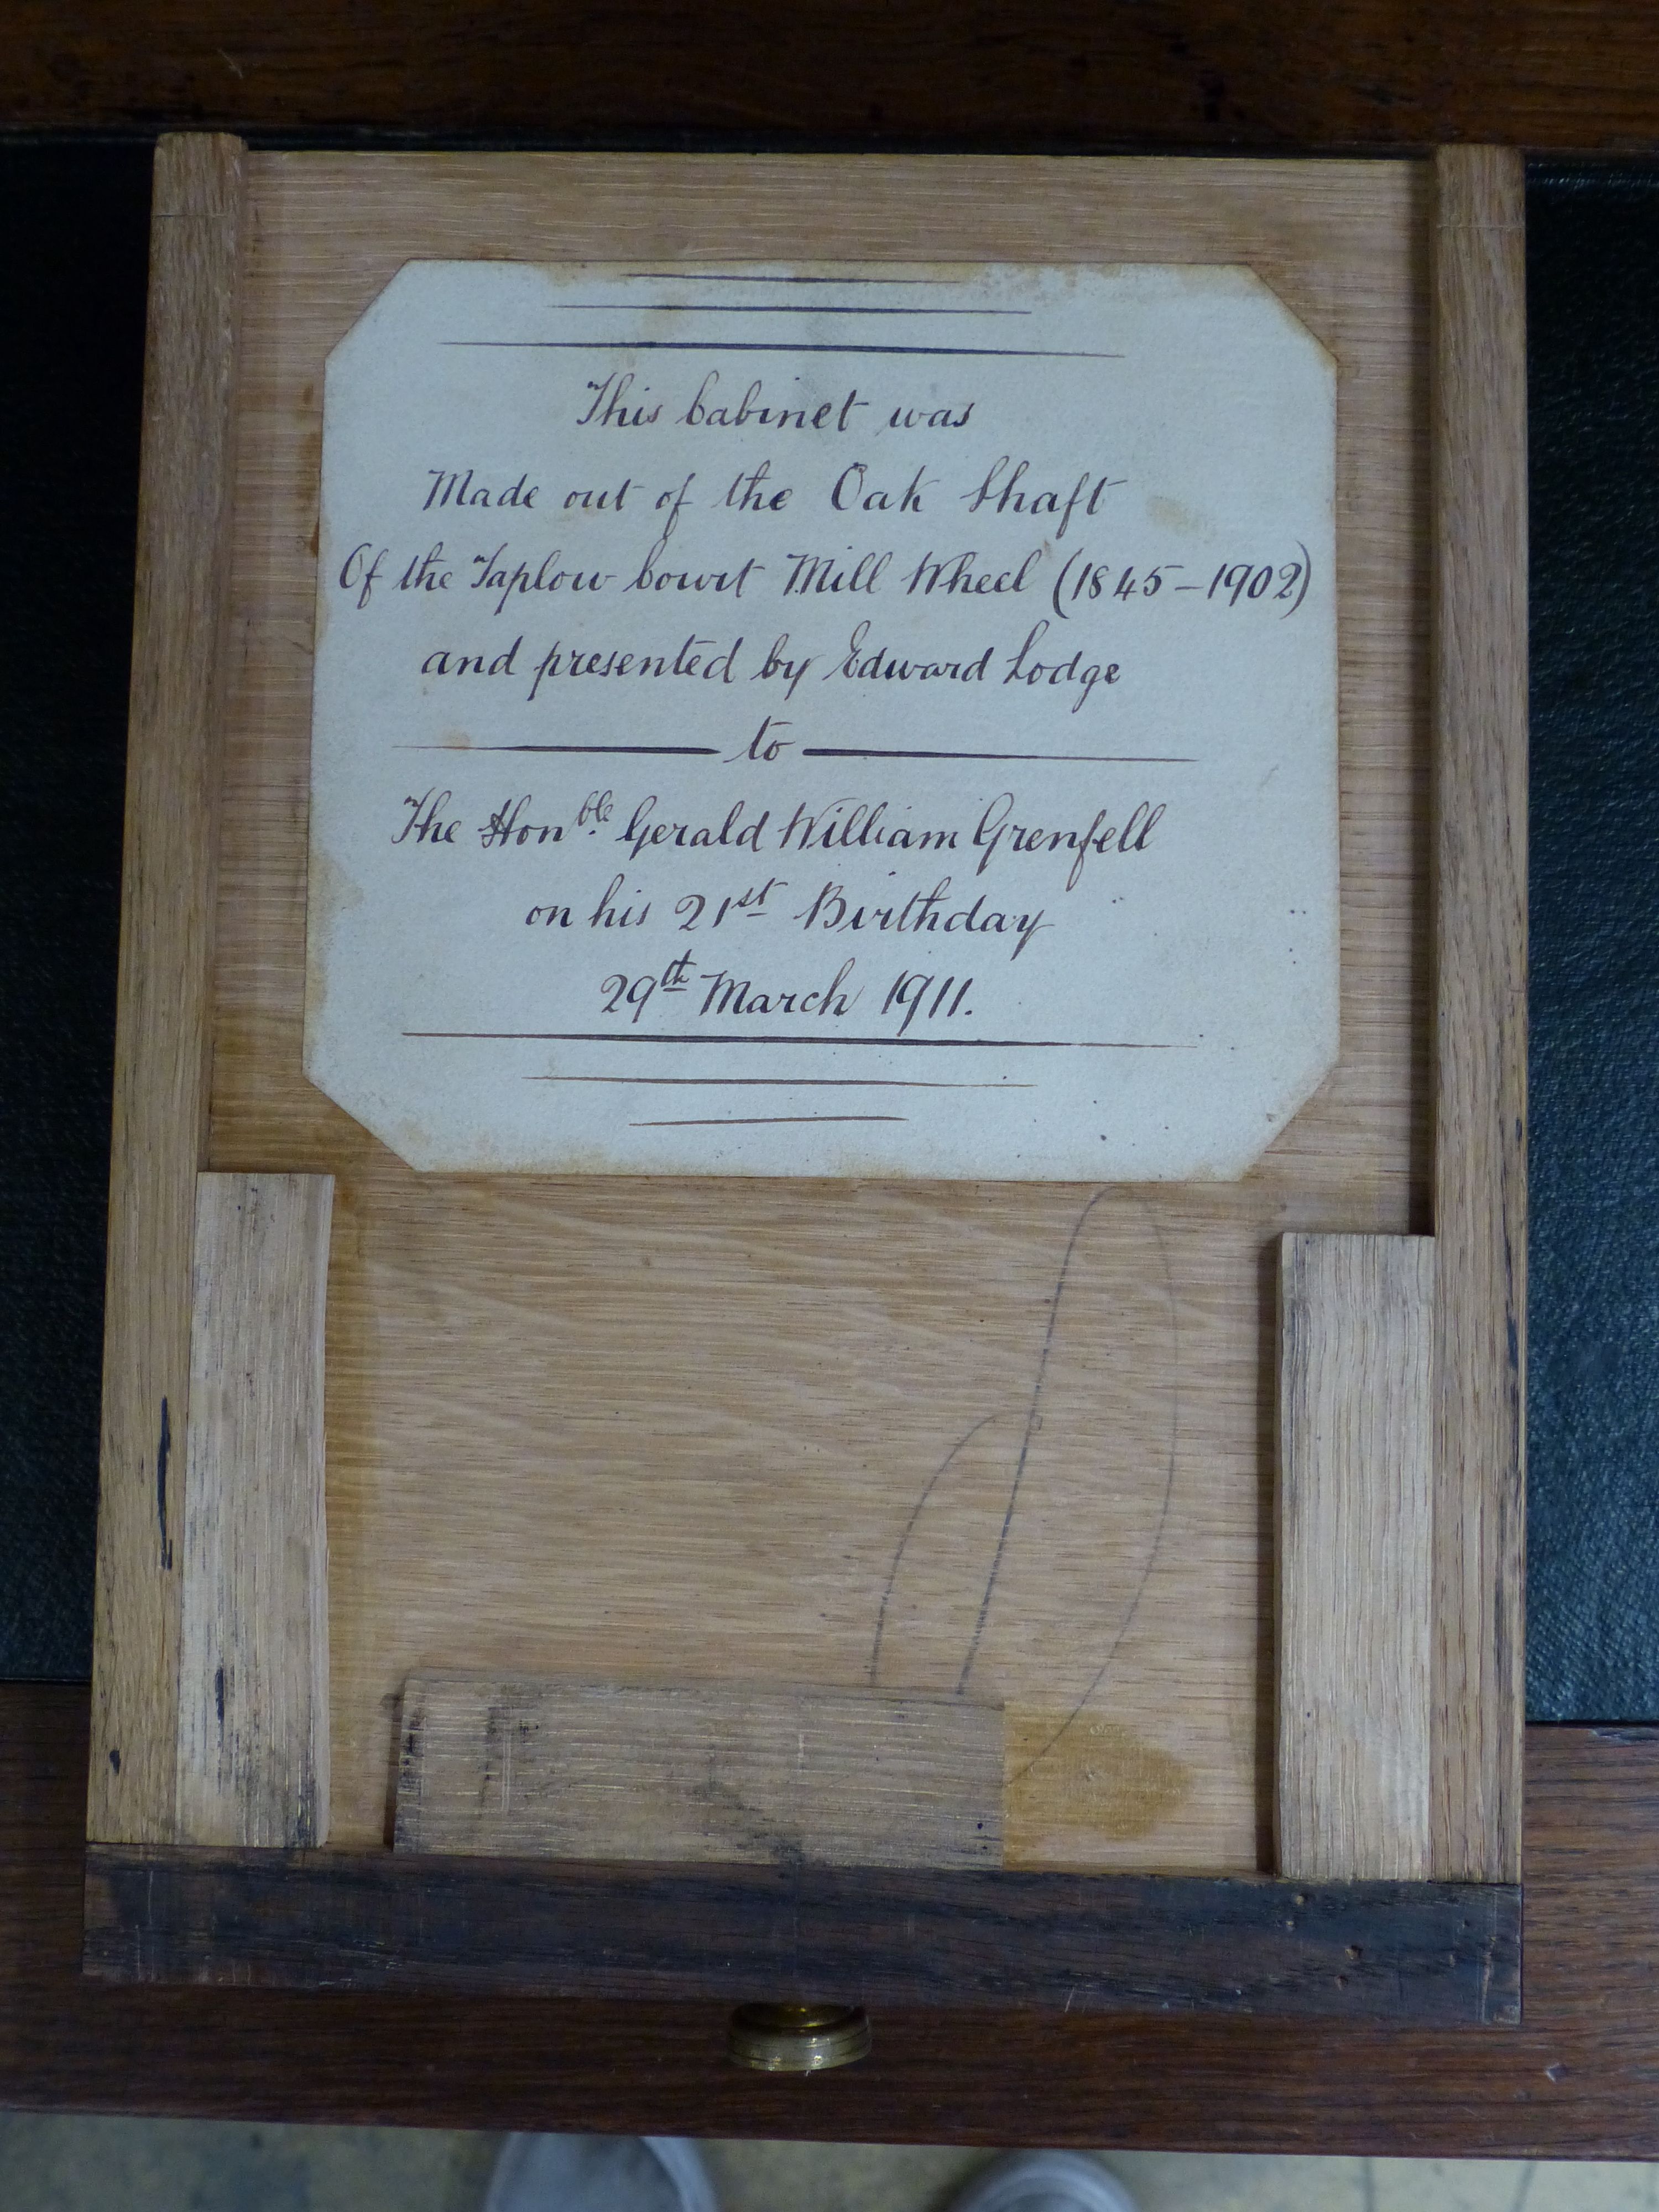 This Cabinet was
Made out of the Oak Shaft
Of the Taplow Court Mill Wheel (1845-1902)
and presented by Edward Lodge
to
The Honble. Gerald William Grenfell
on his 21st Birthday
29th March 1911.